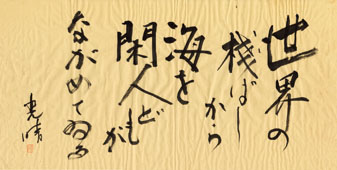 世界の
桟ばし
から
海を
閑人ど
もが
ながめてゐる